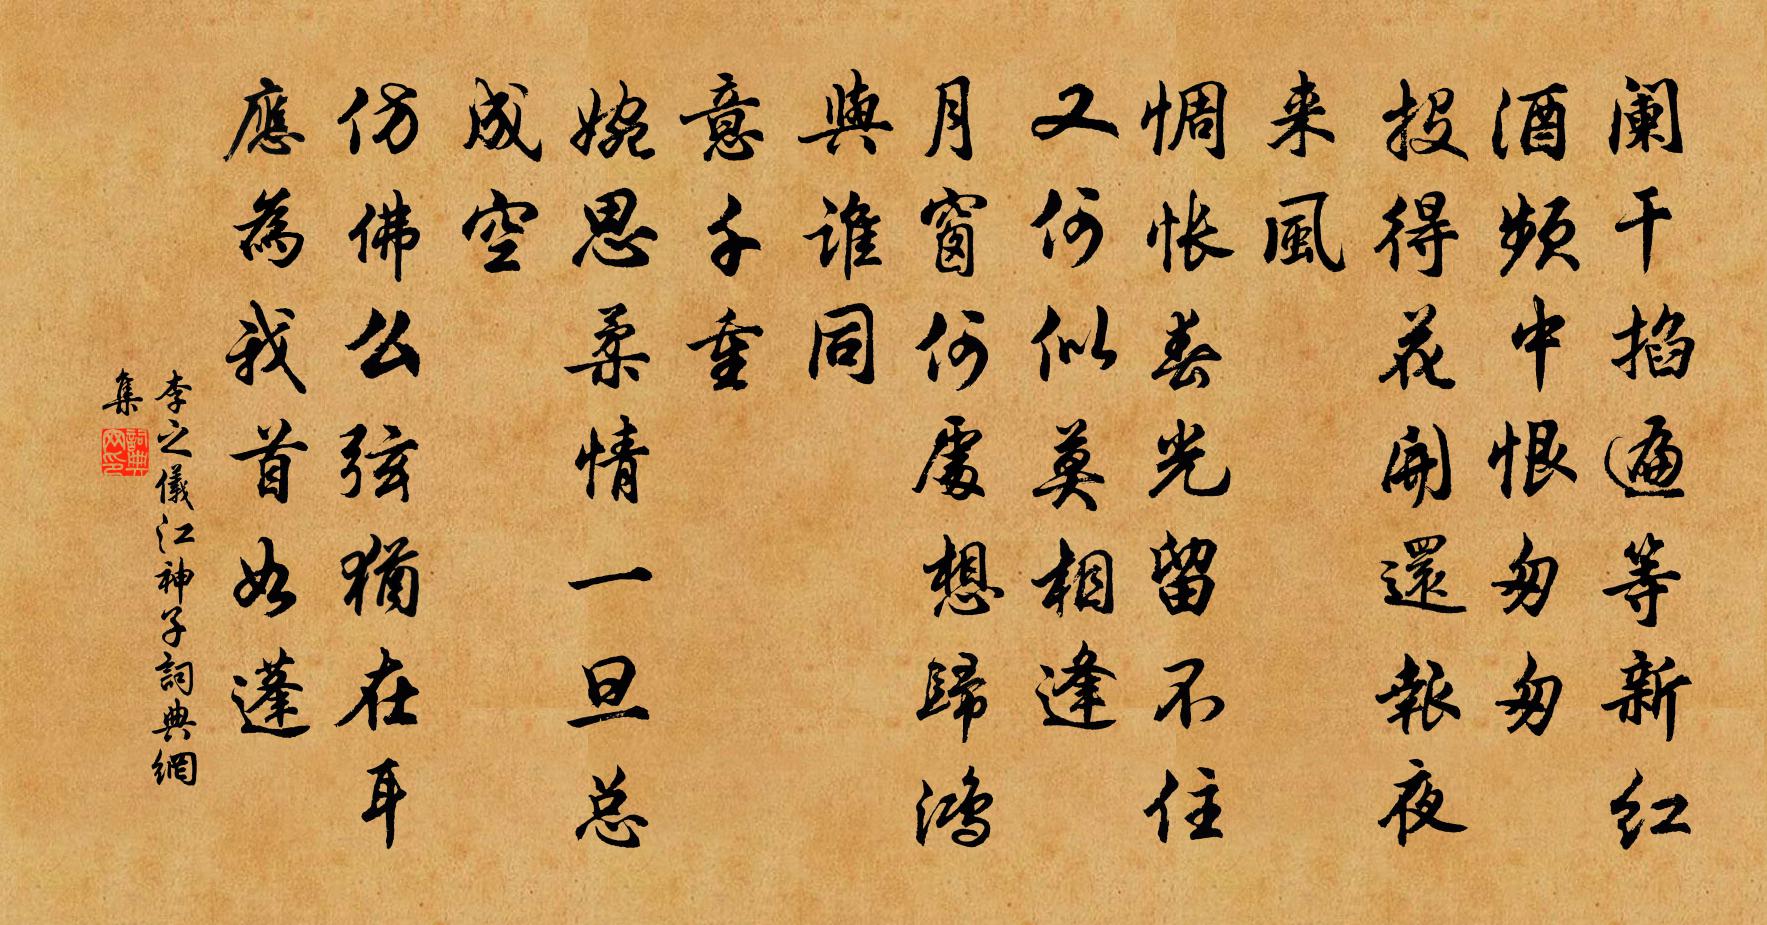 阑干掐遍等新红
酒频中恨匆匆
投得花開還報夜
来風
惆怅春光留不住
又何似莫相逢
月窗何處想歸鴻
與誰同
意千重
婉思柔情一旦总
成空
仿佛么弦猶在耳
應為我首如蓬
李之儀江神子詞典網
集
詞典網印